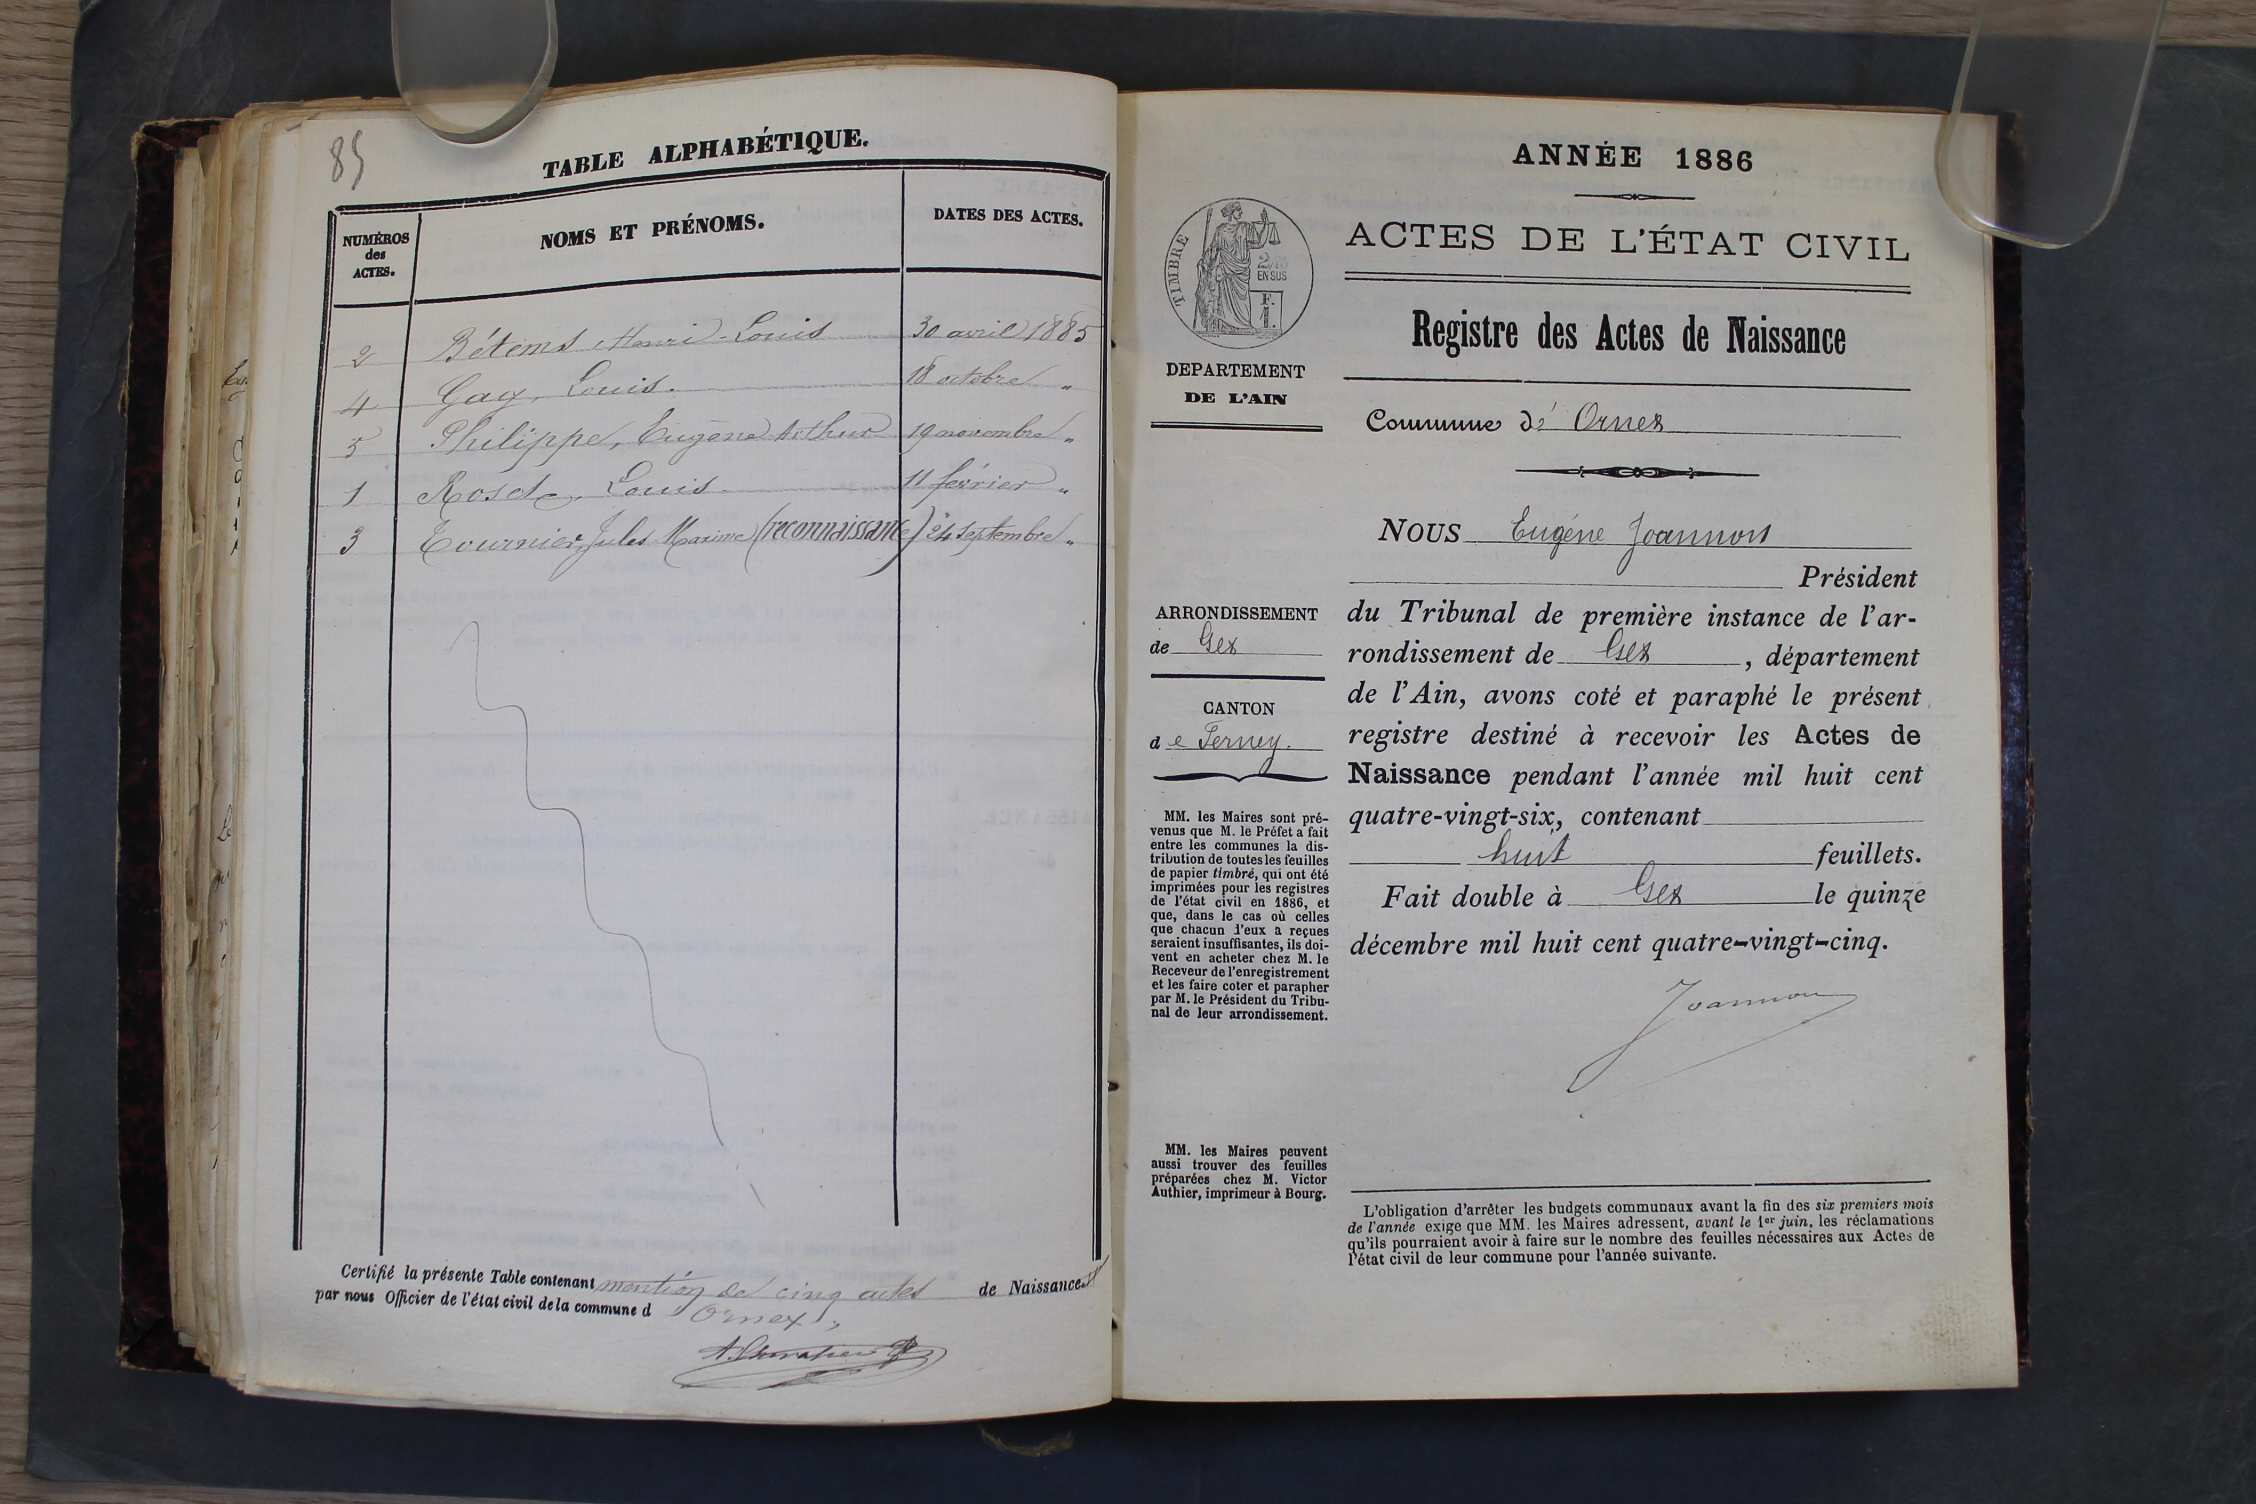 85
TABLE ALPHABÉTIQUE.
NUMÉROS
des
ACTES.
NOMS ET PRÉNOMS.
DATES DES ACTES.
2 Bétems, Henri-Louis 30 avril 1885
4 Gay, Louis. 18 octobre "
5 Philippe, Eugène Arthur 19 novembre "
1 Louis 11 février "
3 Tournier, Jules Maxime (reconnaissance) 24 septembre "
Certifié la présente Table contenant mention de cinq actes de Naissance
par nous Officier de l'état civil de la commune d Ornex,
ANNÉE 1886
TIMBRE
EN SUS
ACTES DE L'ÉTAT CIVIL
Registre des Actes de Naissance
DEPARTEMENT
DE L'AIN
Commune d' Ornex
NOUS Eugène Joannon
Président
du Tribunal de première instance de l'ar-
rondissement de Gex, département
de l'Ain, avons coté et paraphé le présent
registre destiné à recevoir les Actes de
Naissance pendant l'année mil huit cent
quatre-vingt-six, contenant
huit feuillets.
Fait double à Gex le quinze
décembre mil huit cent quatre-vingt-cinq.
Joannon
ARRONDISSEMENT
de Gex
CANTON
de Ferney.
MM. les Maires sont pré-
venus que M. le Préfet a fait
entre les communes la dis-
tribution de toutes les feuilles
de papier timbré, qui ont été
imprimées pour les registres
de l'état civil en 1886, et
que, dans le cas où celles
que chacun d'eux a reçues
seraient insuffisantes, ils doi-
vent en acheter chez M. le
Receveur de l'enregistrement
et les faire coter et parapher
par M. le Président du Tribu-
nal de leur arrondissement.
MM. les Maires peuvent
aussi trouver des feuilles
préparées chez M. Victor
Authier, imprimeur à Bourg.
L'obligation d'arrêter les budgets communaux avant la fin des six premiers mois
de l'année exige que MM. les Maires adressent, avant le 1er juin, les réclamations
qu'ils pourraient avoir à faire sur le nombre des feuilles nécessaires aux Actes de
l'état civil de leur commune pour l'année suivante.